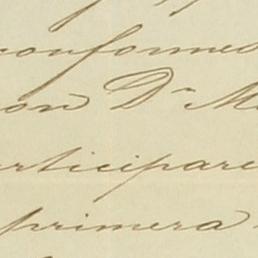 conformed
con Dn M
participare
primera